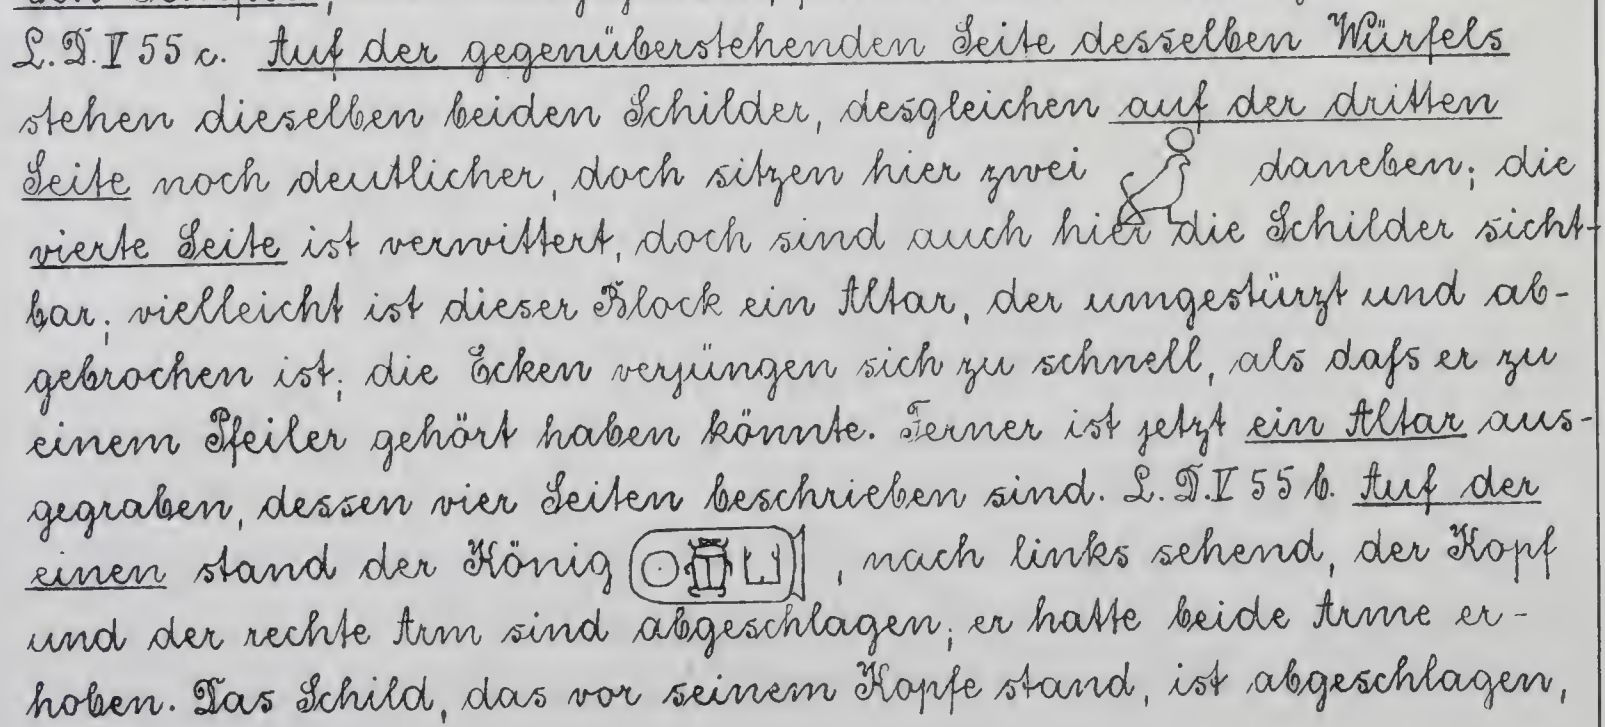 L.D. V 55 c. Auf der gegenüberstehenden Seite desselben Würfels
stehen dieselben beiden Schilder, desgleichen auf der dritten
Seite noch deutlicher, doch sitzen hier zwei daneben; die
vierte Seite ist verwittert, doch sind auch hier die Schilder sicht-
bar; vielleicht ist dieser Block ein Altar, der umgestürzt und ab-
gebrochen ist; die Ecken verjüngen sich zu schnell, als daſs er zu
einem Pfeiler gehört haben könnte. Ferner ist jetzt ein Altar aus-
gegraben, dessen vier Seiten beschrieben sind. L.D. V 55 b. Auf der
einen stand der König 𓍹𓇳𓆣𓂓𓍺, nach links sehend, der Kopf
und der rechte Arm sind abgeschlagen; er hatte beide Arme er-
hoben. Das Schild, das vor seinem Kopfe stand, ist abgeschlagen,